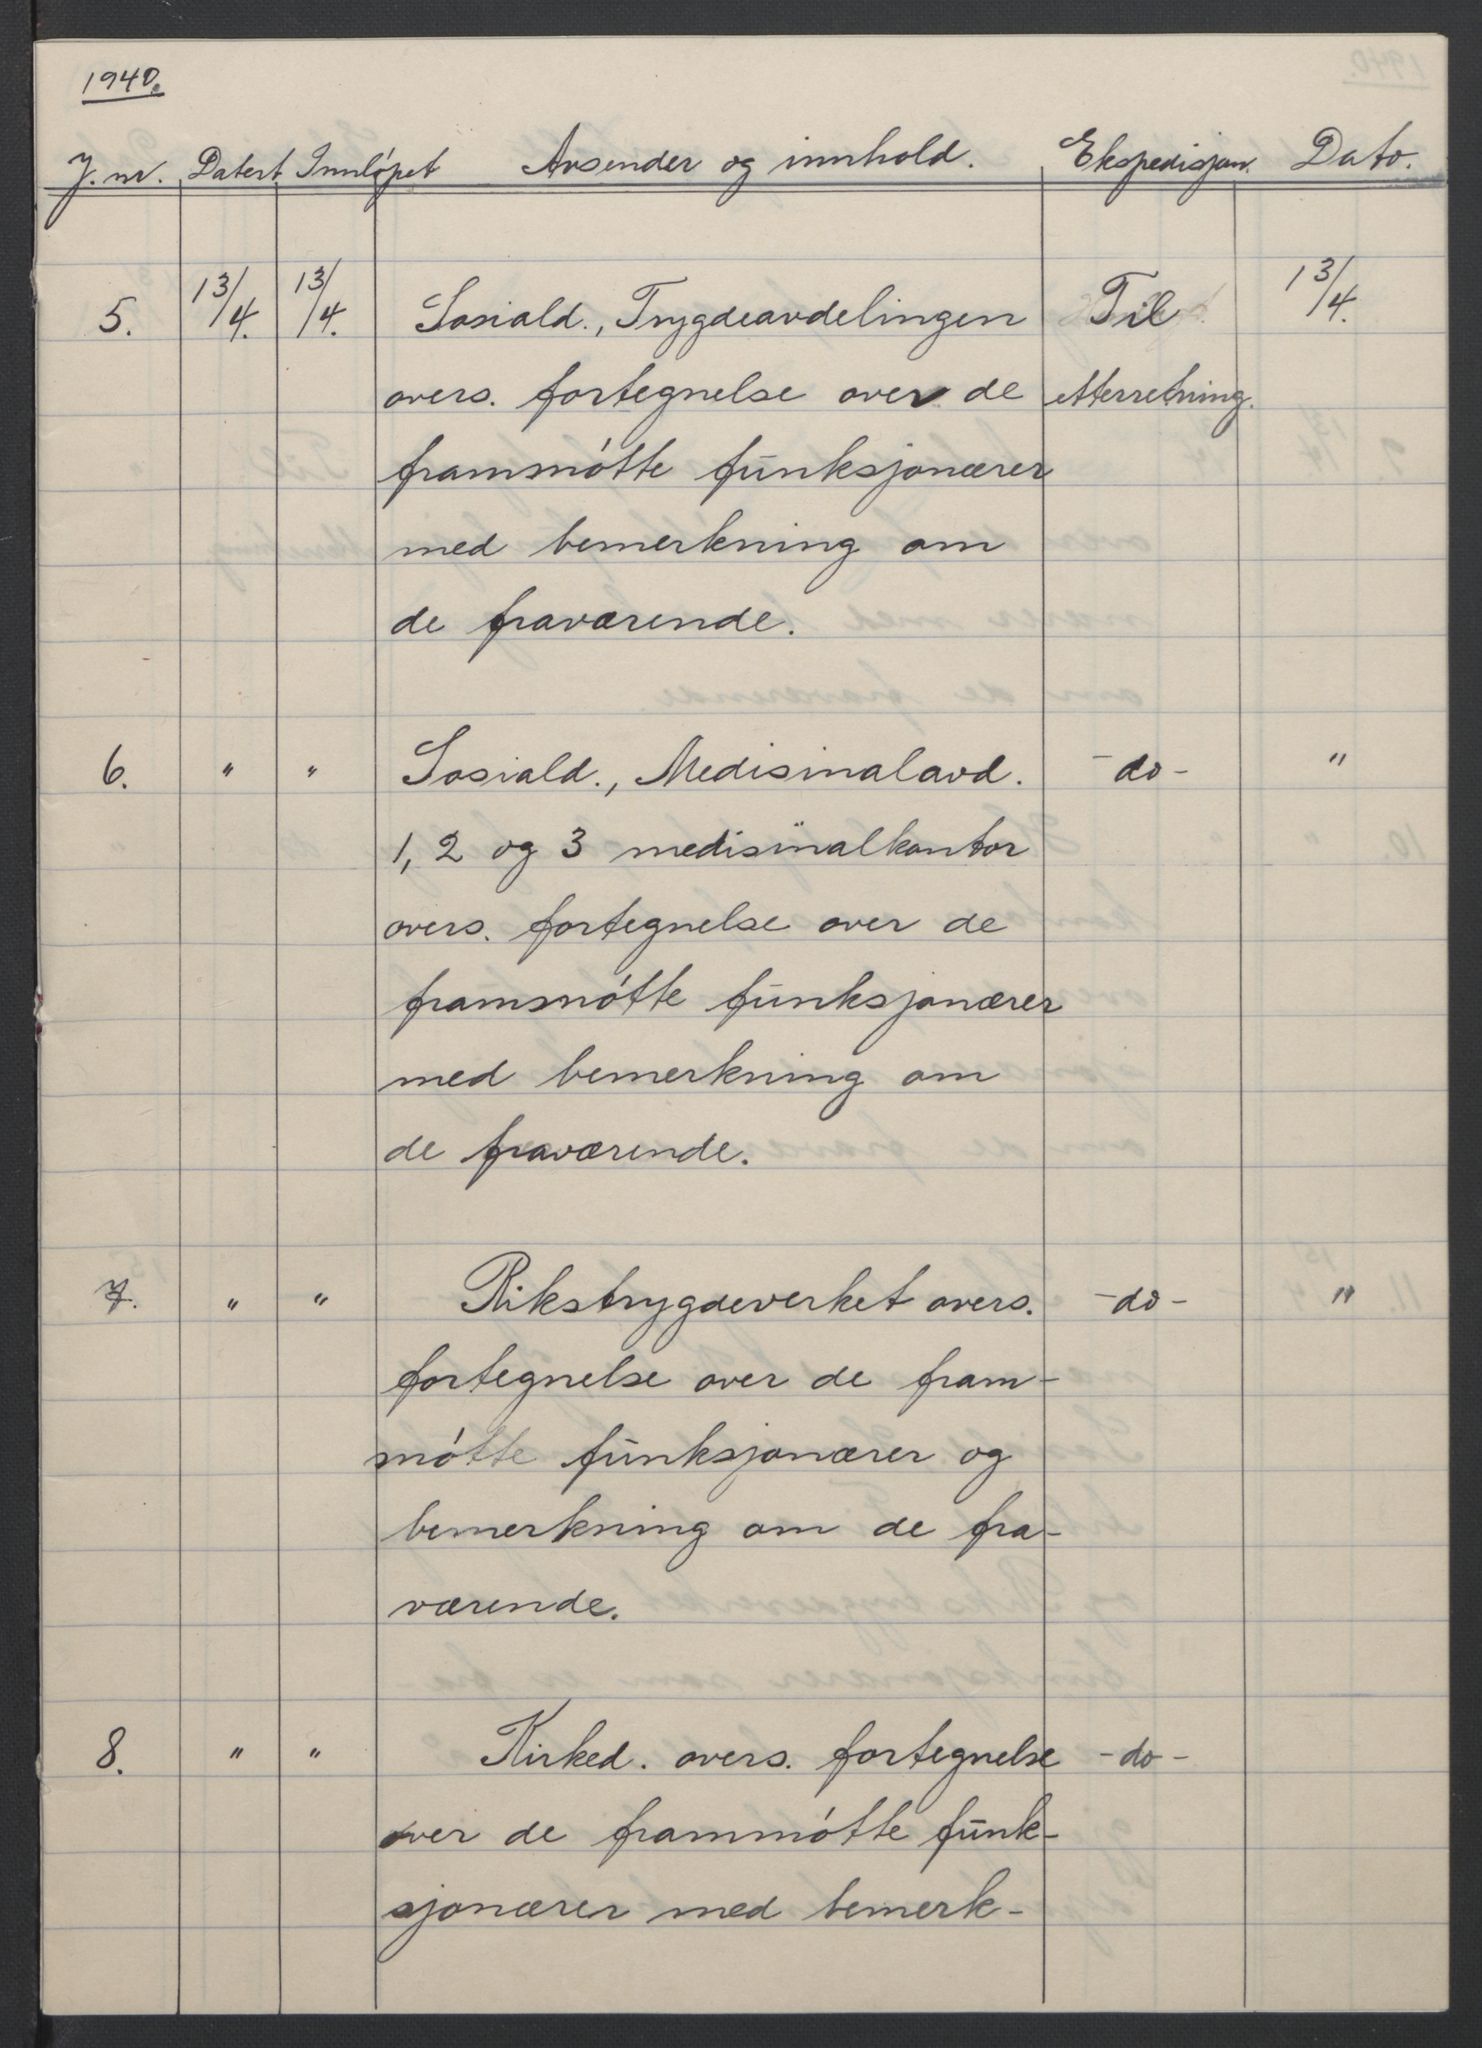 1940.
J. nr. Datert. Innløpet Avsender og innhold. Ekspedisjon. Dato.
5. 13/4. 13/4. Sosiald., Trygdeavdelingen Til 13/4.
overs. fortegnelse over de etterretning.
frammøtte funksjonærer
med bemerkning om
de fraværende.
6. " " Sosiald., Medisinalavd. -do- "
1, 2 og 3 medisinalkontor
overs. fortegnelse over de
frammøtte funksjonærer
med bemerkning om
de fraværende.
7. " " Rikstrygdeverket overs. -do- "
fortegnelse over de fram-
møtte funksjonærer og
bemerkning om de fra-
værende.
8. " " Kirked. overs. fortegnelse -do-
over de frammøtte funk-
sjonærer med bemerk-